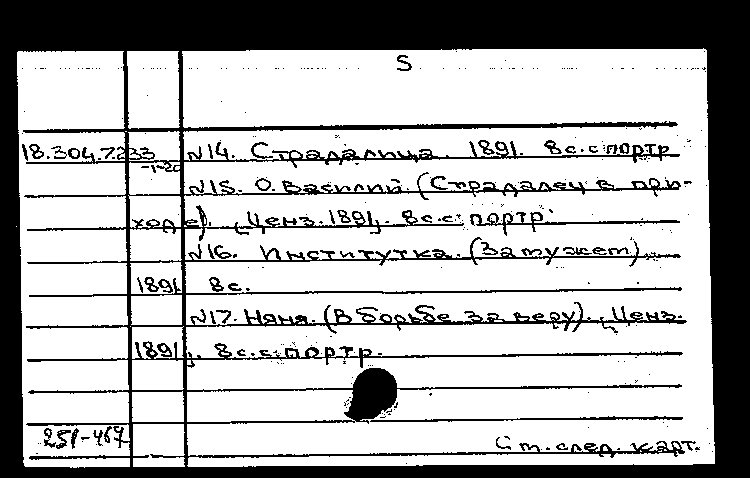 5
18.304.7.233 №14. Страдалица. 1891. 8с. с портр
-1-20
№15. О. Василий (Страдалец в при-
ходе). [Ценз. 1891]. 8с. с портр.
№16. Институтка. (Замужем).
1891. 8с.
№17. Няня. (В борьбе за веру). [Ценз.
1891]. 8с. с портр.
251-467
См. след. карт.